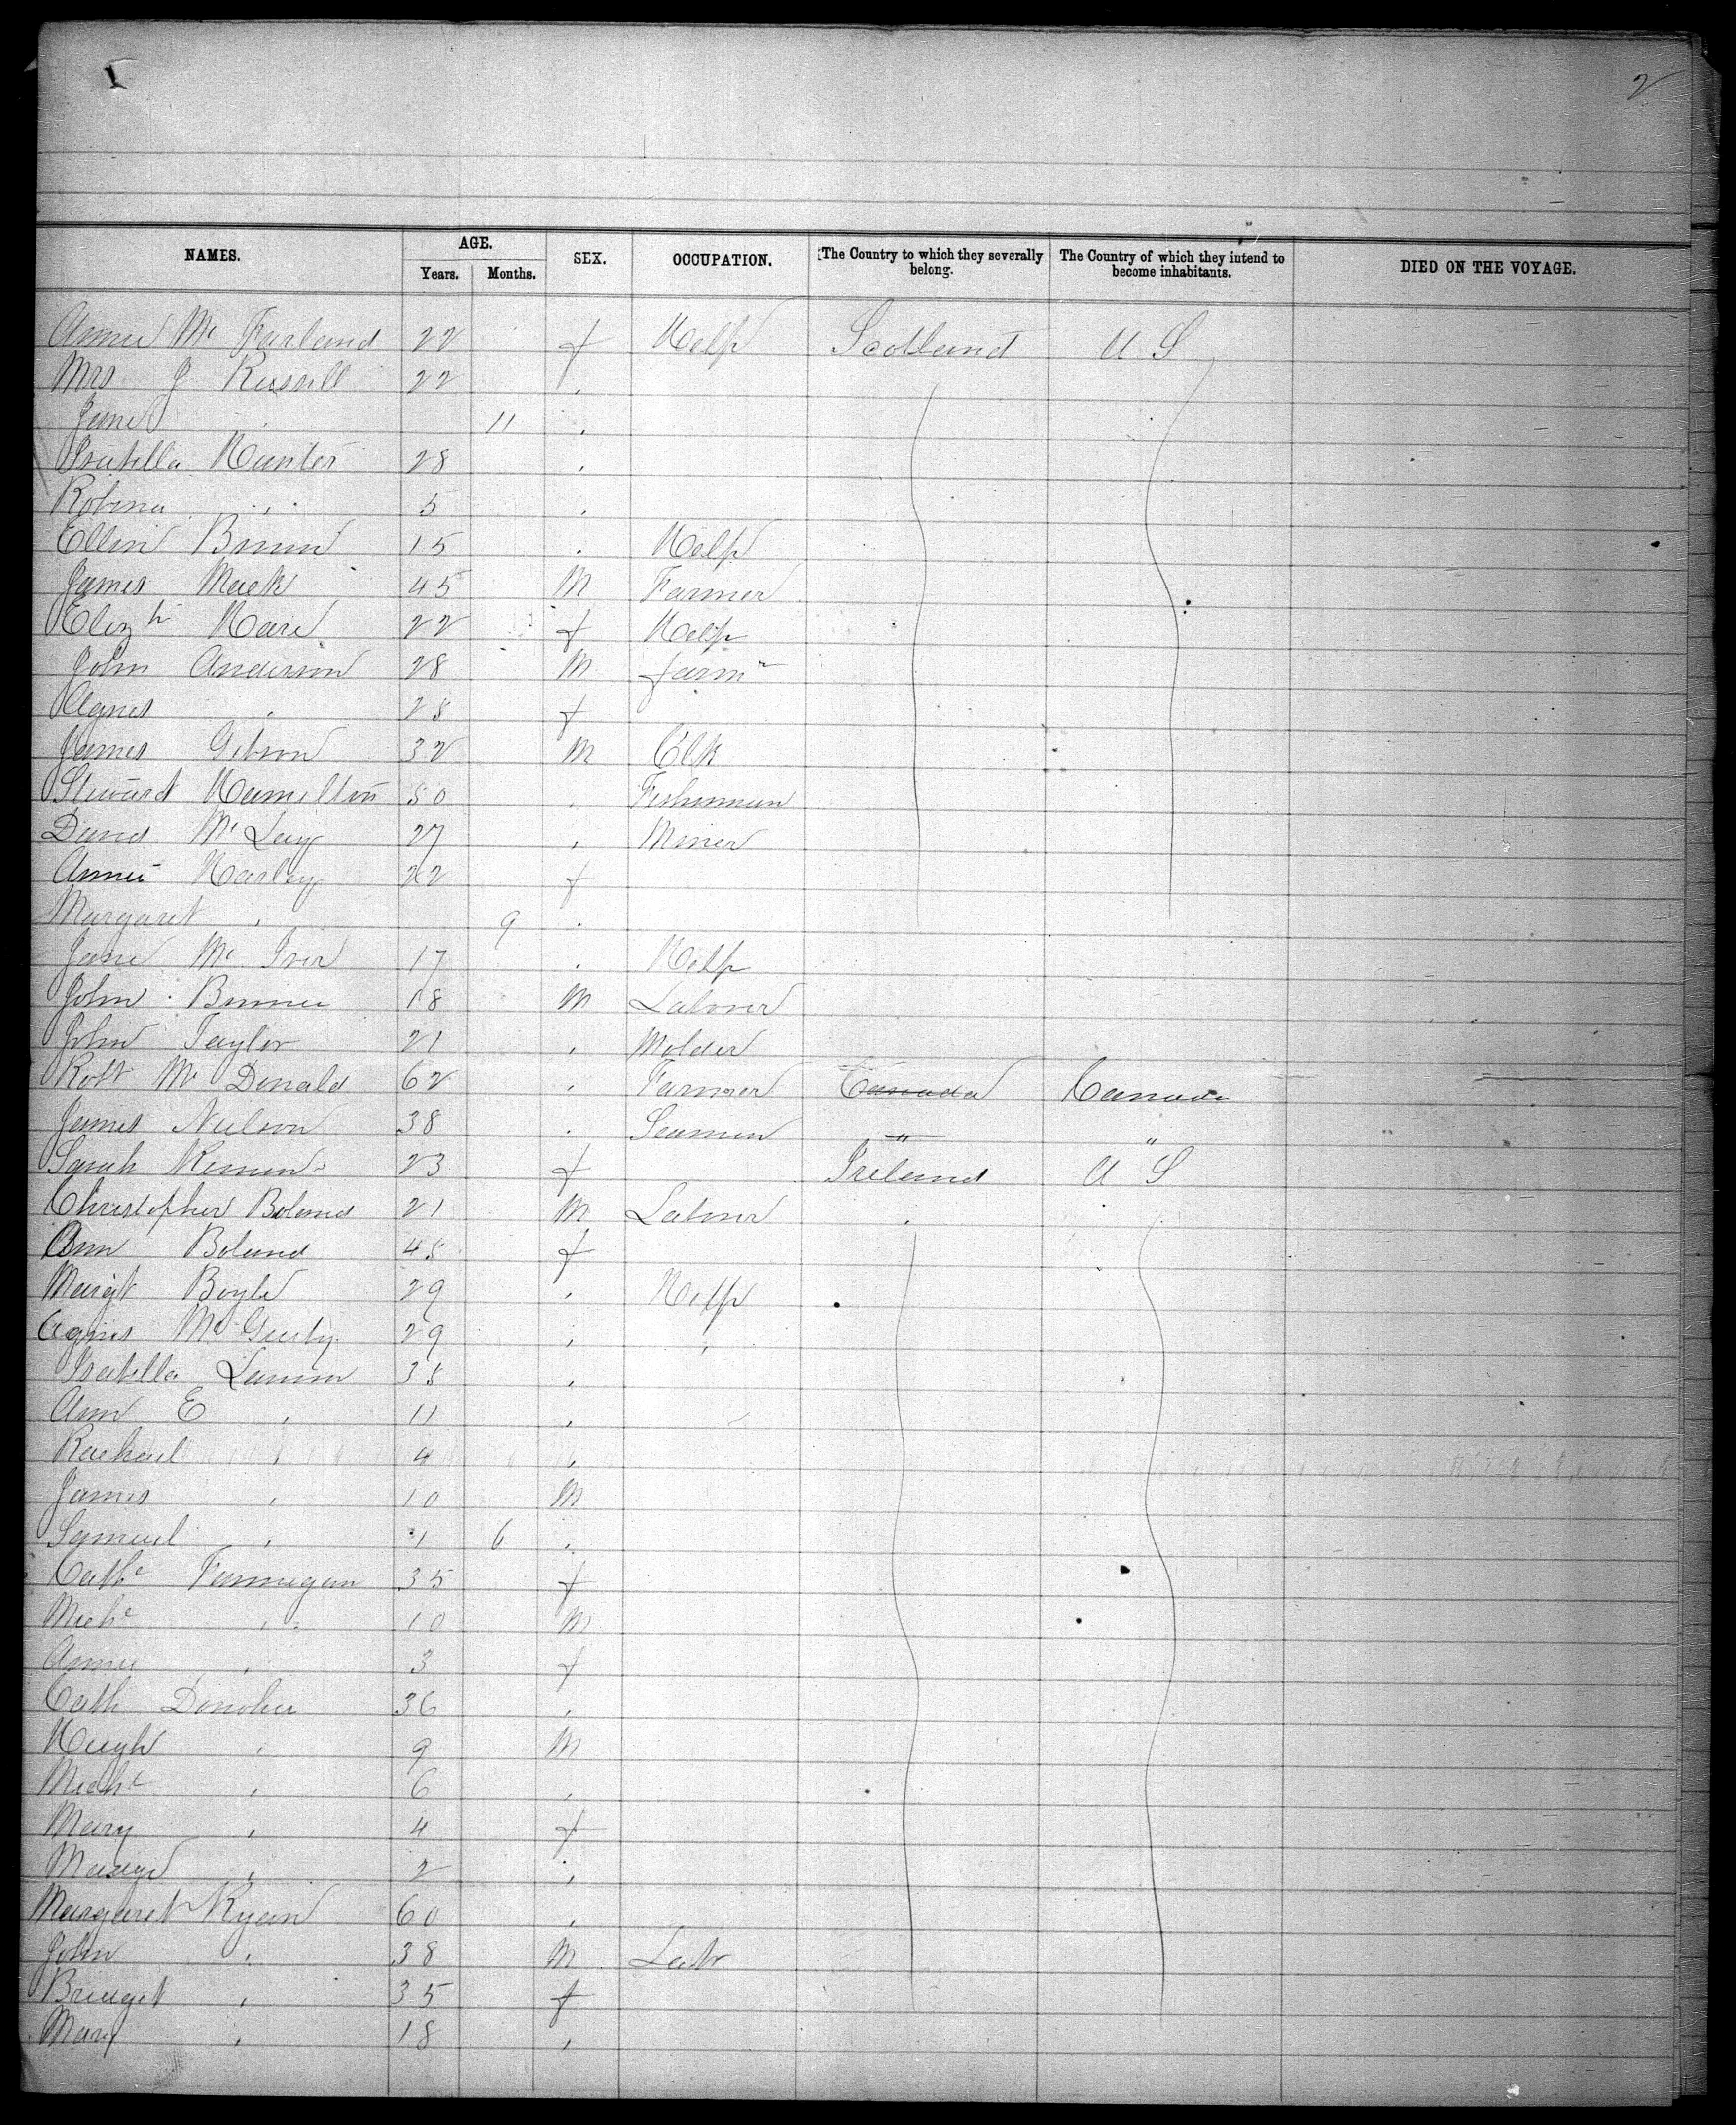 2
NAMES. AGE. SEX. OCCUPATION. The Country to which they severally belong. The Country of which they intend to become inhabitants. DIED ON THE VOYAGE.
Years. Months.
Annie Mc Farland 22 f Help Scotland U S
Mrs J Russell 22 "
Jane " 11 "
Isabella Hunter 28 "
Robina " 5 "
Ellen 15 " Help
James Mack 45 M Farmer
Elizth Hare 22 f Help
John Anderson 28 M farmr
Agnes " 28 f
James Gibson 32 M Clk
Steward Hamilton 50 " Fisherman
David Mc Lay 27 " Miner
Annie Harley 22 f
Margaret " 9 "
Jane Mc Iver 17 " Help
John 18 M Laborer
John Taylor 21 " Molder
Robt Mc Donald 62 " Farmer Canada Canada
James Neilson 38 " Seaman " "
Sarah 23 f Ireland U S
Christopher Boland 21 M Laborer "
Ann Boland 45 f
Margt Boyle 29 " Help
Agnes 29 " "
Isabella 35 "
Ann E " 11 "
Rachael " 4 "
James " 10 M
Samuel " 1 6 "
Cathe Finnegan 35 f
Miche " 10 M
Annie " 3 f
Cath Donohue 36 "
Hugh " 9 M
Miche " 6 "
Mary " 4 f
" 2 "
Margaret Ryan 60 "
John " 38 M Labr
Bridget " 35 f
Mary " 18 "